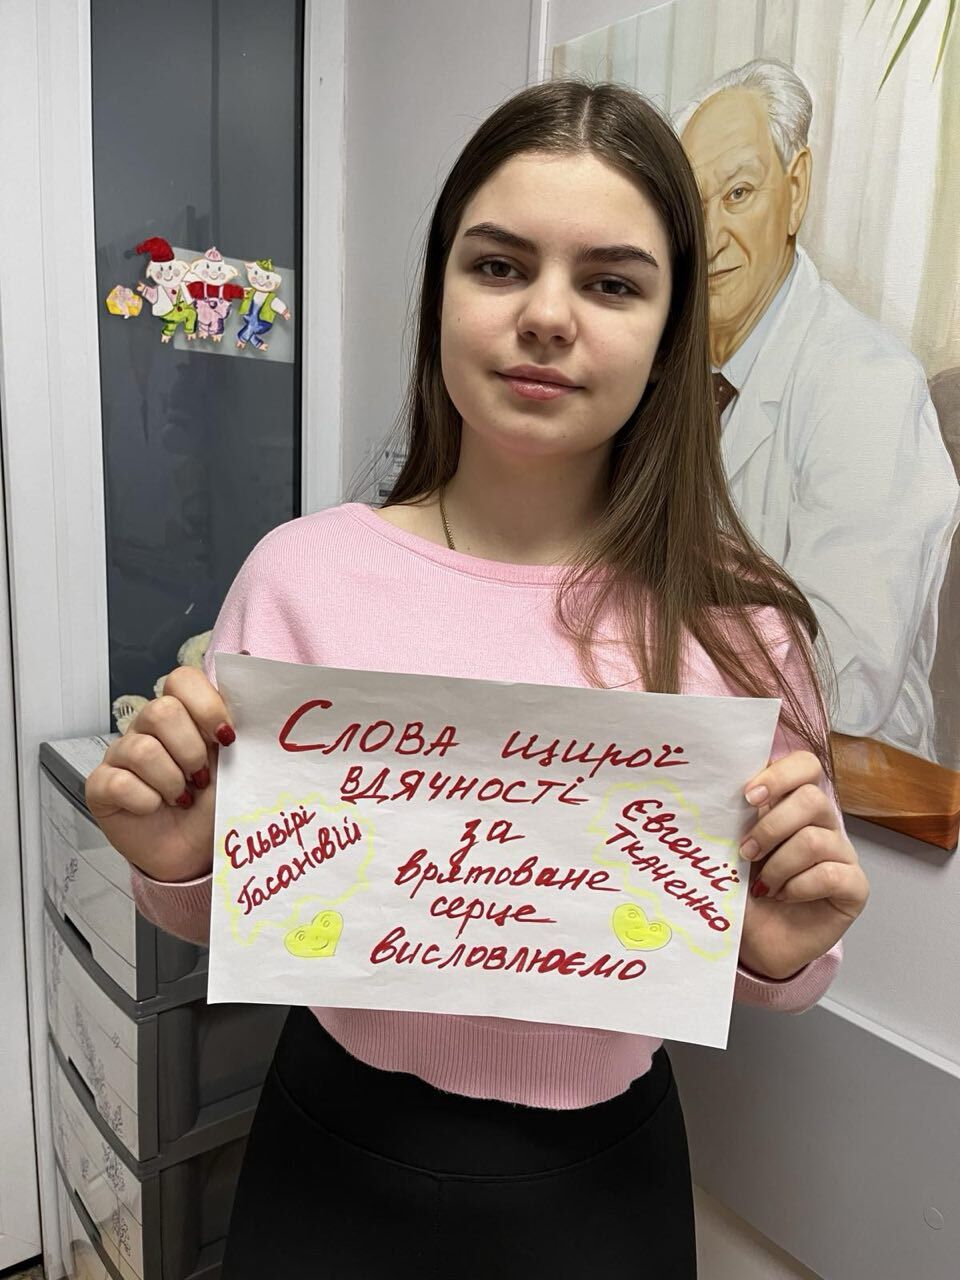 Слова щирої
вдячності
за
врятоване
серце
висловлюємо
Ельвірі
Гасановій
Євгенії
Ткаченко